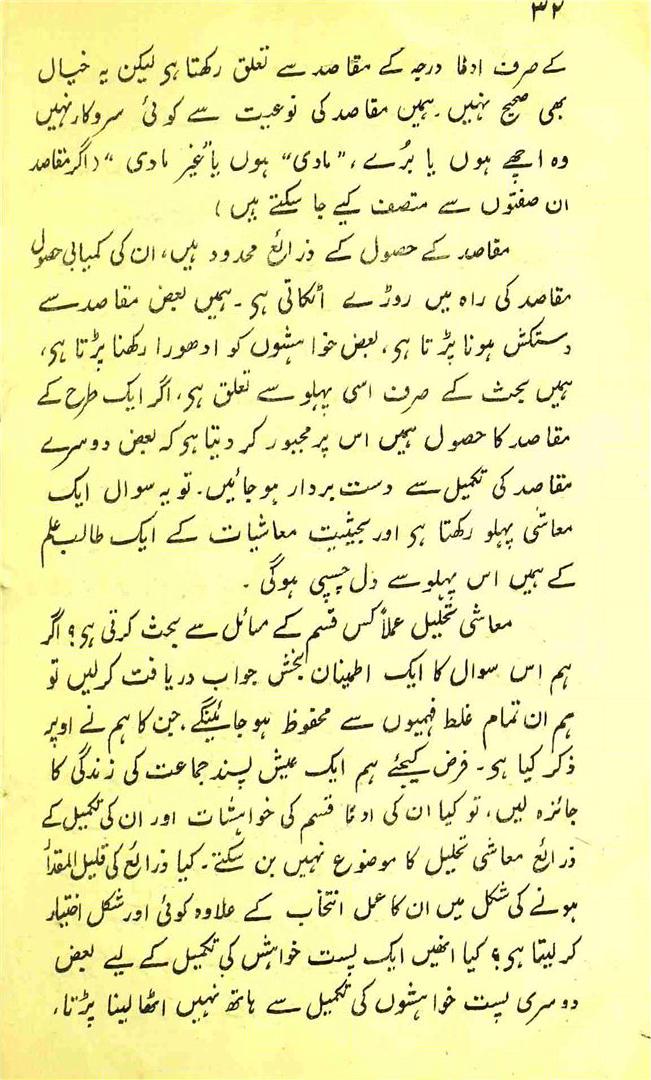 ۳۲
کے صرف ادنٰا درجہ کے مقاصد سے تعلق رکھتا ہی لیکن یہ خیال
بھی صحیح نہیں۔ ہمیں مقاصد کی نوعیت سے کوئی سروکار نہیں
وہ اچھے ہوں یا بُرے، "مادی" ہوں یا "غیر مادی" (اگر مقاصد
ان صفتوں سے متصف کیے جا سکتے ہیں)
مقاصد کے حصول کے ذرائع محدود ہیں، ان کی کمیابی حصول
مقاصد کی راہ میں روڑے اٹکاتی ہی۔ ہمیں بعض مقاصد سے
دستکش ہونا پڑتا ہی، بعض خواہشوں کو ادھورا رکھنا پڑتا ہی،
ہمیں بحث کے صرف اسی پہلو سے تعلق ہی، اگر ایک طرح کے
مقاصد کا حصول ہمیں اس پر مجبور کر دیتا ہی کہ بعض دوسرے
مقاصد کی تکمیل سے دست بردار ہو جائیں۔ تو یہ سوال ایک
معاشی پہلو رکھتا ہی اور بحیثیت معاشیات کے ایک طالب علم
کے ہمیں اس پہلو سے دل چسپی ہوگی۔
معاشی تحلیل عملاً کس قسم کے مسائل سے بحث کرتی ہی؟ اگر
ہم اس سوال کا ایک اطمینان بخش جواب دریافت کرلیں تو
ہم ان تمام غلط فہمیوں سے محفوظ ہو جائینگے، جن کا ہم نے اوپر
ذکر کیا ہی۔ فرض کیجئے ہم ایک عیش پسند جماعت کی زندگی کا
جائزہ لیں، تو کیا ان کی ادنٰا قسم کی خواہشات اور ان کی تکمیل کے
ذرائع معاشی تحلیل کا موضوع نہیں بن سکتے۔ کیا ذرائع کی قلیل المقدار
ہونے کی شکل میں ان کا عمل انتخاب کے علاوہ کوئی اور شکل اختیار
کر لیتا ہی؟ کیا انھیں ایک پست خواہش کی تکمیل کے لیے بعض
دوسری پست خواہشوں کی تکمیل سے ہاتھ نہیں اٹھا لینا پڑتا،